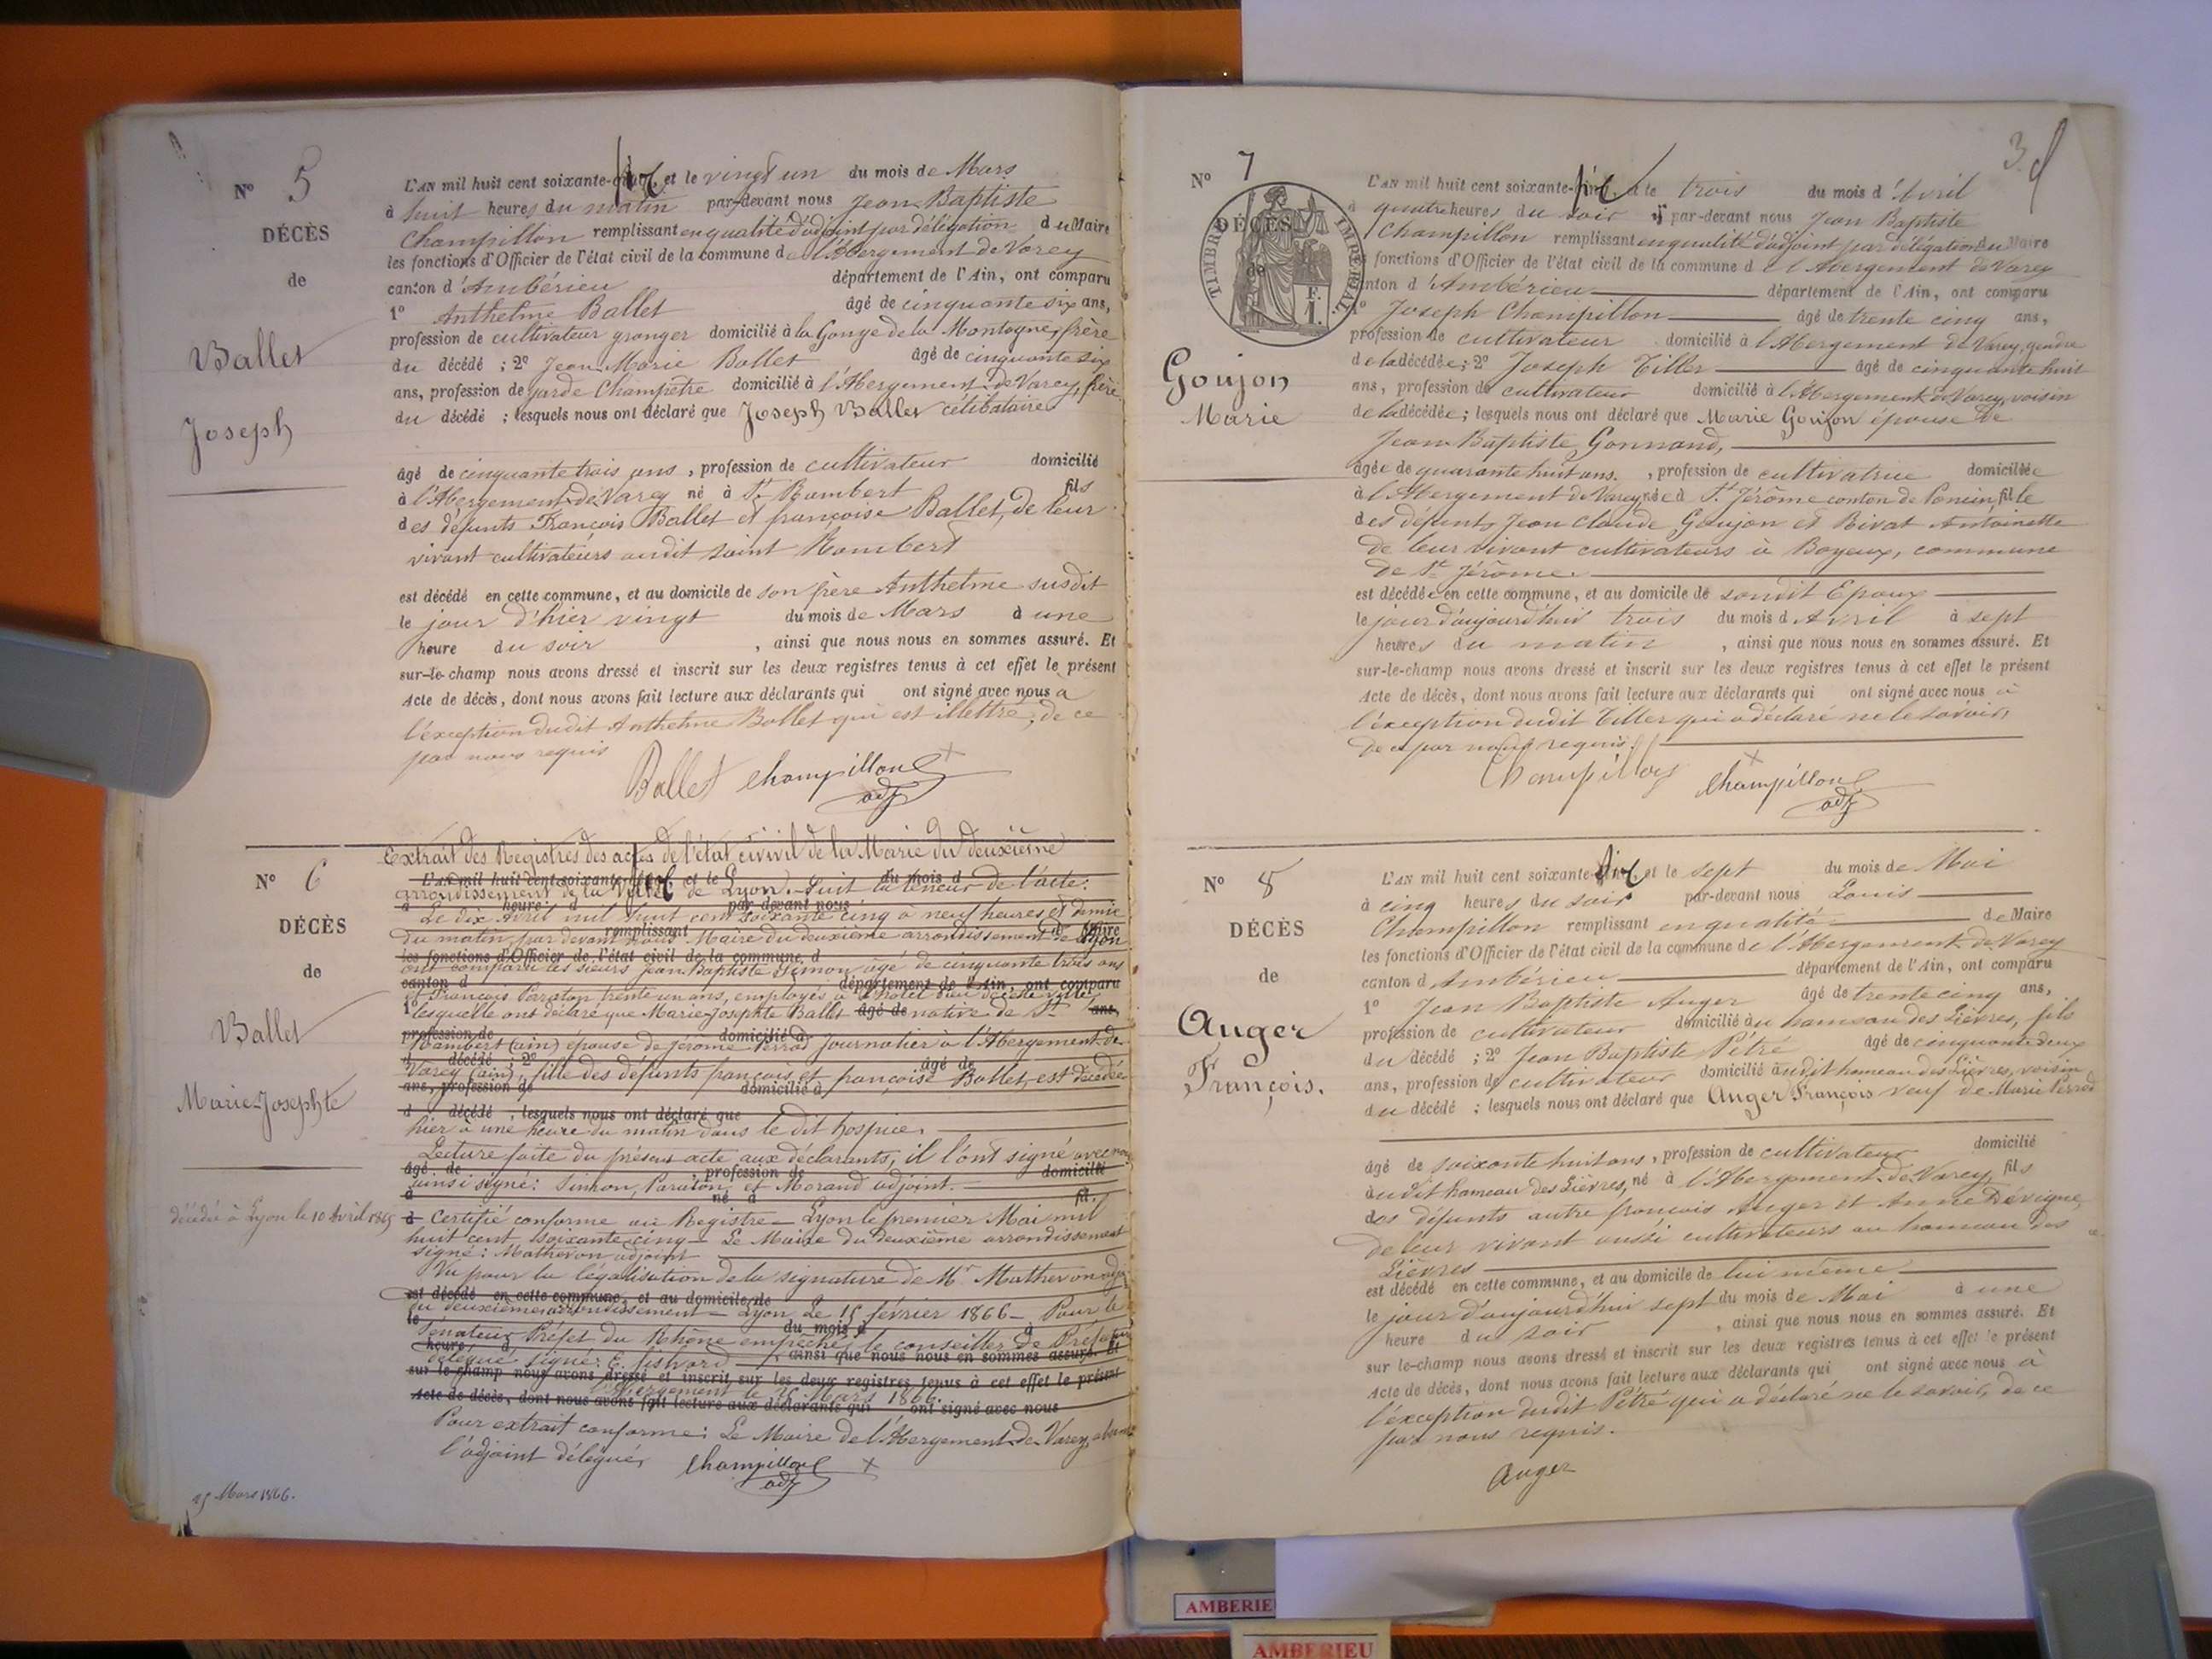 N° 5
DÉCÈS
de
Ballet
Joseph
L'AN mil huit cent soixante-six et le vingt un du mois de Mars
à huit heures du matin par-devant nous Jean Baptiste
Champillon remplissant en qualité d'adjoint par délégation du Maire
les fonctions d'Officier de l'état civil de la commune de l'Abergement de Varey
canton d'Ambérieu département de l'Ain, ont comparu
1° Anthelme Ballet âgé de cinquante six ans,
profession de cultivateur granger domicilié à la Gonge de la Montagne, frère
du décédé ; 2° Jean Marie Ballet âgé de cinquante six
ans, profession de garde Champêtre domicilié à l'Abergement de Varey, frère
du décédé ; lesquels nous ont déclaré que Joseph Ballet célibataire
âgé de cinquante trois ans, profession de cultivateur domicilié
à l'Abergement de Varey né à St. Rambert fils
des défunts François Ballet et françoise Ballet, de leur
vivant cultivateurs audit saint Rambert
est décédé en cette commune, et au domicile de son frère Anthelme susdit
le jour d'hier vingt du mois de Mars à une
heure du soir , ainsi que nous nous en sommes assuré. Et
sur-le-champ nous avons dressé et inscrit sur les deux registres tenus à cet effet le présent
Acte de décès, dont nous avons fait lecture aux déclarants qui ont signé avec nous à
l'éxception dudit Anthelme Ballet qui est illettré, de ce
par nous requis
Ballet Champillon
adj
N° 6
DÉCÈS
de
Ballet
Marie-Josephte
décédée à Lyon le 10 Avril 1865
25 Mars 1866.
Extrait des Registres des actes de l'état civivil de la Marie du deuxième
L'AN mil huit cent soixante-six et le du mois d
arrondissement de la Ville de Lyon. Suit la teneur de l'acte:
à heure d par devant nous
Le dix Avril mil huit cent soixante cinq à neuf heures et demie
remplissant d Maire
du matin, par devant nous Maire du deuxième arrondissement de Lyon
les fonctions d'Officier de l'état civil de la commune d
ont comparu les sieurs Jean Baptiste Simon âgé de cinquante trois ans
canton d département de l'Ain, ont comparu
et François Paraton trente un ans, employés à l'hotel Dieu de cette ville
1° lesquelle ont déclaré que Marie-Josephte Ballet âgé de native de St ans,
profession de domicilié à
Rambert (ain) épouse de Jérome Perrod journalier à l'Abergement de
d décédé ; 2° âgé de
Varey (ain), fille des défunts françois et françoise Ballet, est décédée
ans, profession de domicilié à
d décédé ; lesquels nous ont déclaré que
hier à une heure du matin dans le dit hospice.
Lecture faite du présent acte aux déclarants, il l'ont signé avec nous
âgé de profession de domicilié
ainsi signé: Simon, Paraton, et Morand adjoint.
à né à fil.
d Certifié conforme au Registre - Lyon le premier Mai mil
huit cent soixante cinq - Le Maire du deuxième arrondissement
signé: Matheron adjoint
Vu pour la légalisation de la signature de Mr Matheron adj
est décédé en cette commune, et au domicile de
du deuxième arrondissement - Lyon Le 15 février 1866 - Pour le
le du mois d à
Sénateur Préfet du Rhône empêché, le conseiller de Préfecture
heure d , ainsi que nous nous en sommes assuré. Et
délégué signé: E.
sur-le-champ nous avons dressé et inscrit sur les deux registres tenus à cet effet le présent
l'Abergement le 25 Mars 1866.
Acte de décès, dont nous avons fait lecture aux déclarants qui ont signé avec nous
Pour extrait conforme: Le Maire de l'Abergement de Varey, absent
l'adjoint délégué, Champillon
adj
3
N° 7
TIMBRE IMPÉRIAL
DÉCÈS
de
Goujon
Marie
L'AN mil huit cent soixante-six et le trois du mois d'Avril
à quatre heures du soir par-devant nous Jean Baptiste
Champillon remplissant en qualité d'adjoint par délégation du Maire
les fonctions d'Officier de l'état civil de la commune de l'Abergement de Varey
canton d'Ambérieu département de l'Ain, ont comparu
1° Joseph Champillon âgé de trente cinq ans,
profession de cultivateur domicilié à l'Abergement de Varey, gendre
de la décédée ; 2° Joseph Tiller âgé de cinquante huit
ans, profession de cultivateur domicilié à l'Abergement de Varey, voisin
de la décédée ; lesquels nous ont déclaré que Marie Goujon épouse de
Jean Baptiste Gonnand,
âgée de quarante huit ans. , profession de cultivatrice domiciliée
à l'Abergement de Varey née à St. Jérôme canton de Poncin fille
des défunts Jean Claude Goujon et Rivat Antoinette
de leur vivant cultivateurs à Boyeux, commune
de St Jérôme.
est décédée en cette commune, et au domicile de sondit Epoux
le jour d'aujourd'hui trois du mois d'Avril à sept
heures du matin , ainsi que nous nous en sommes assuré. Et
sur-le-champ nous avons dressé et inscrit sur les deux registres tenus à cet effet le présent
Acte de décès, dont nous avons fait lecture aux déclarants qui ont signé avec nous à
l'éxception dudit Tiller qui a déclaré ne le savoir,
de ce par nous requis.
Champillon Champillon
adj
N° 8
DÉCÈS
de
Auger
François.
L'AN mil huit cent soixante-six et le sept du mois de Mai
à cinq heures du soir par-devant nous Louis
Champillon remplissant en qualité de Maire
les fonctions d'Officier de l'état civil de la commune de l'Abergement de Varey
canton d'Ambérieu département de l'Ain, ont comparu
1° Jean Baptiste Auger âgé de trente cinq ans,
profession de cultivateur domicilié au hameau des Lièvres, fils
du décédé ; 2° Jean Baptiste Pétré âgé de cinquante deux
ans, profession de cultivateur domicilié audit hameau des Lièvres, voisin
du décédé ; lesquels nous ont déclaré que Auger François veuf de Marie Perrod
âgé de soixante huit ans, profession de cultivateur domicilié
audit hameau des Lièvres, né à l'Abergement de Varey, fils
des défunts autre françois Auger et Anne Dévigne,
de leur vivant aussi cultivateurs au hameau des
Lièvres
est décédé en cette commune, et au domicile de lui même
le jour d'aujourd'hui sept du mois de Mai à une
heure du soir , ainsi que nous nous en sommes assuré. Et
sur le-champ nous avons dressé et inscrit sur les deux registres tenus à cet effet le présent
Acte de décès, dont nous avons fait lecture aux déclarants qui ont signé avec nous à
l'éxception dudit Pétré qui a déclaré ne le savoir, de ce
par nous requis.
Auger
AMBERIE
AMBERIEU